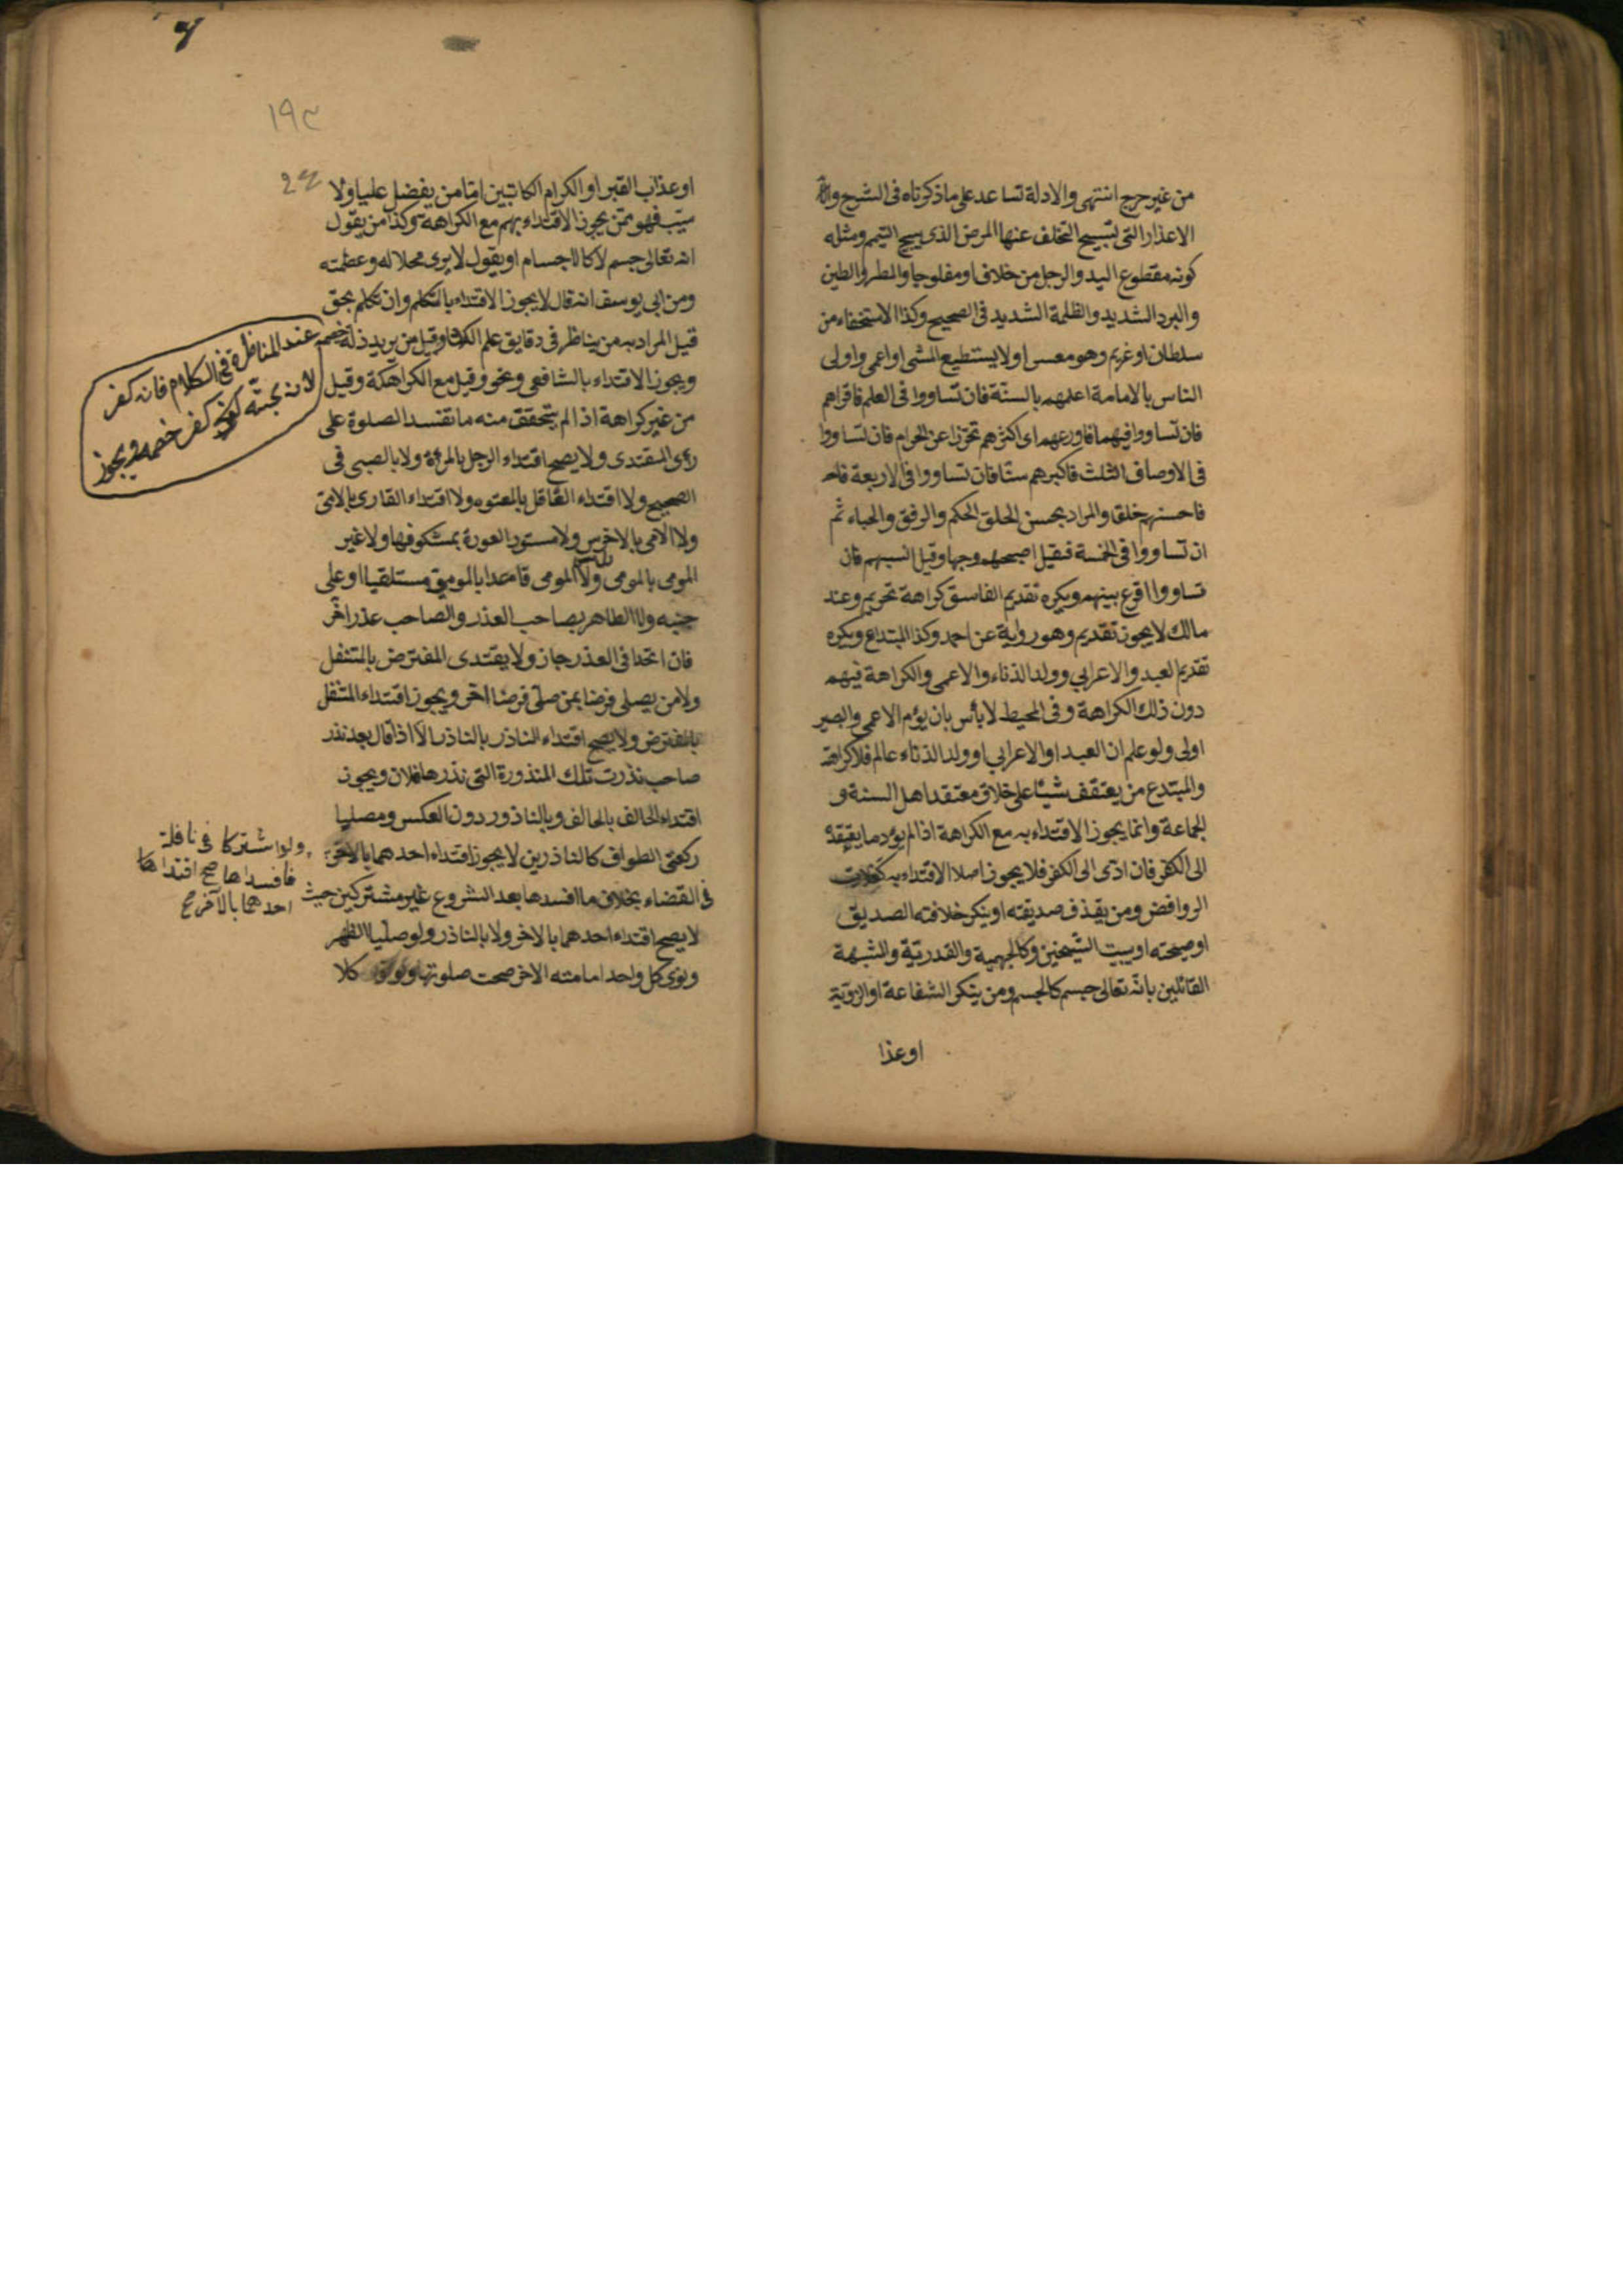 من غير حرج انتهى والادلة تساعد على ما ذكرناه فى الشرح والله
الاعذار التى تبيح التخلف عنها المرض الذى يبيح التيمم ومثله
كونه مقطوع اليد والرجل من خلاف او مفلوجا والمطر والطين
والبرد الشديد والظلمة الشديد فى الصحيح وكذا الاستخفاء من
سلطان او غريم وهو معسر او لا يستطيع المشى او اعمى واولى
الناس بالامامة اعلمهم بالسنة فان تساووا فى العلم فاقراهم
فان تساووا فيهما فاورعهم اى اكثرهم تحرزا عن الحرام فان تساووا
فى الاوصاف الثلث فاكبرهم سنا فان تساووا فى الاربعة فاحـ
فاحسنهم خلقا والمراد بحسن الخلق الحكم والرفق والحياء ثم
ان تساووا فى الخمسة فقيل اصبحهم وجها وقيل انسبهم فان
تساووا اقرع بينهم ويكره تقديم الفاسق كراهة تحريم وعند
مالك لا يجوز تقديم وهو رواية عن احمد وكذا المبتداع ويكره
تقديم لعبد والاعرابي وولد الذناء والاعمى والكراهة فيهم
دون ذلك الكراهة وفى المحيط لا بأس بان يؤم الاعمى والبصير
اولى ولو علم ان العبد او الاعرابي او ولد الذناء عالم فلا كراهة
والمبتدع من يعتقف شيئا على خلاف معتقد اهل السنة و
الجماعة وانما يجوز الاقتداء به مع الكراهة اذا لم يؤد ما يقيقدﻩ
الى الكفر فان ادى الى الكفر فلا يجوز اصلا الاقتداء به كغلات
الروافض ومن يقذف صديقته او ينكر خلافته الصديق
او صحبته او يسب الشيخين وكالجهمية والقدرية والمشبهة
القائلين بانه تعالى جسم كالجسم ومن ينكر الشفاعة او الرؤية
او عذا
١٩٣
او عذاب القبر او الكرام الكاتبين اما من يفضل عليا ولا
يسب فهو ممن يجوز الاقتداء بهم مع الكراهة وكذا من يقول
انه تعالى جسم لا كالاجسام او يقول لا يرى لجلاله وعظمته
ومن ابى يوسف انه قال لا يجوز الاقتداء بالمتكلم وان تكلم بحق
قيل المراد به من يناظر فى دقايق علم الكلام وقيل من يريد ذلة خصمه
عند المناظرة فى الكلام فانه كفر
لانه يحبه كفر خصمه ويجوز
ويجوز الاقتداء بالشافعى ونحو وقيل مع الكراهة وقيل
من غير كراهة اذا لم يتحقق منه ما تفسد الصلوة على
رأى المقتدى ولا يصح اقتداء الرجل بالمرءة ولا بالصبى فى
الصحيح ولا اقتداء العاقل بالمعتوه ولا اقتداء القارى بالامى
ولا الامى بالاخرس ولا مستور العورة بمكشوفها ولا غير
المومى بالمومى ولا المومى قاعدا بالمومى مستلقيا او على
جنبه ولا الطاهر بصاحب العذر والصاحب عذر اخر
فان اتحدا فى العذر جاز ولا يقتدى المفترض بالمتنفل
ولا من يصلى فرضا بمن صلى فرضا اخر ويجوز اقتداء المتنفل
بالمفترض ولا يصح اقتداء الناذر بالناذر الا اذا قال بعد نذر
صاحبه نذرت تلك المنذورة التى نذرها فلان ويجوز
اقتداء الحالف بالحالف وبالناذور دون العكس ومصليا
ركعتى الطواف كالناذرين لا يجوز اقتداء احدهما بالاخر
ولو اشتركا فى نافلة
فافسداها صح اقتداها
احدهما بالآخر صح
فى القضاء بخلاف ما افسدها بعد الشروع غير مشتركين حيث
لا يصح اقتداء احدهما بالاخر ولا بالناذر ولو صليا الظهر
ونوى كل واحد امامته الاخر صحت صلوتها ولو نوى كلا